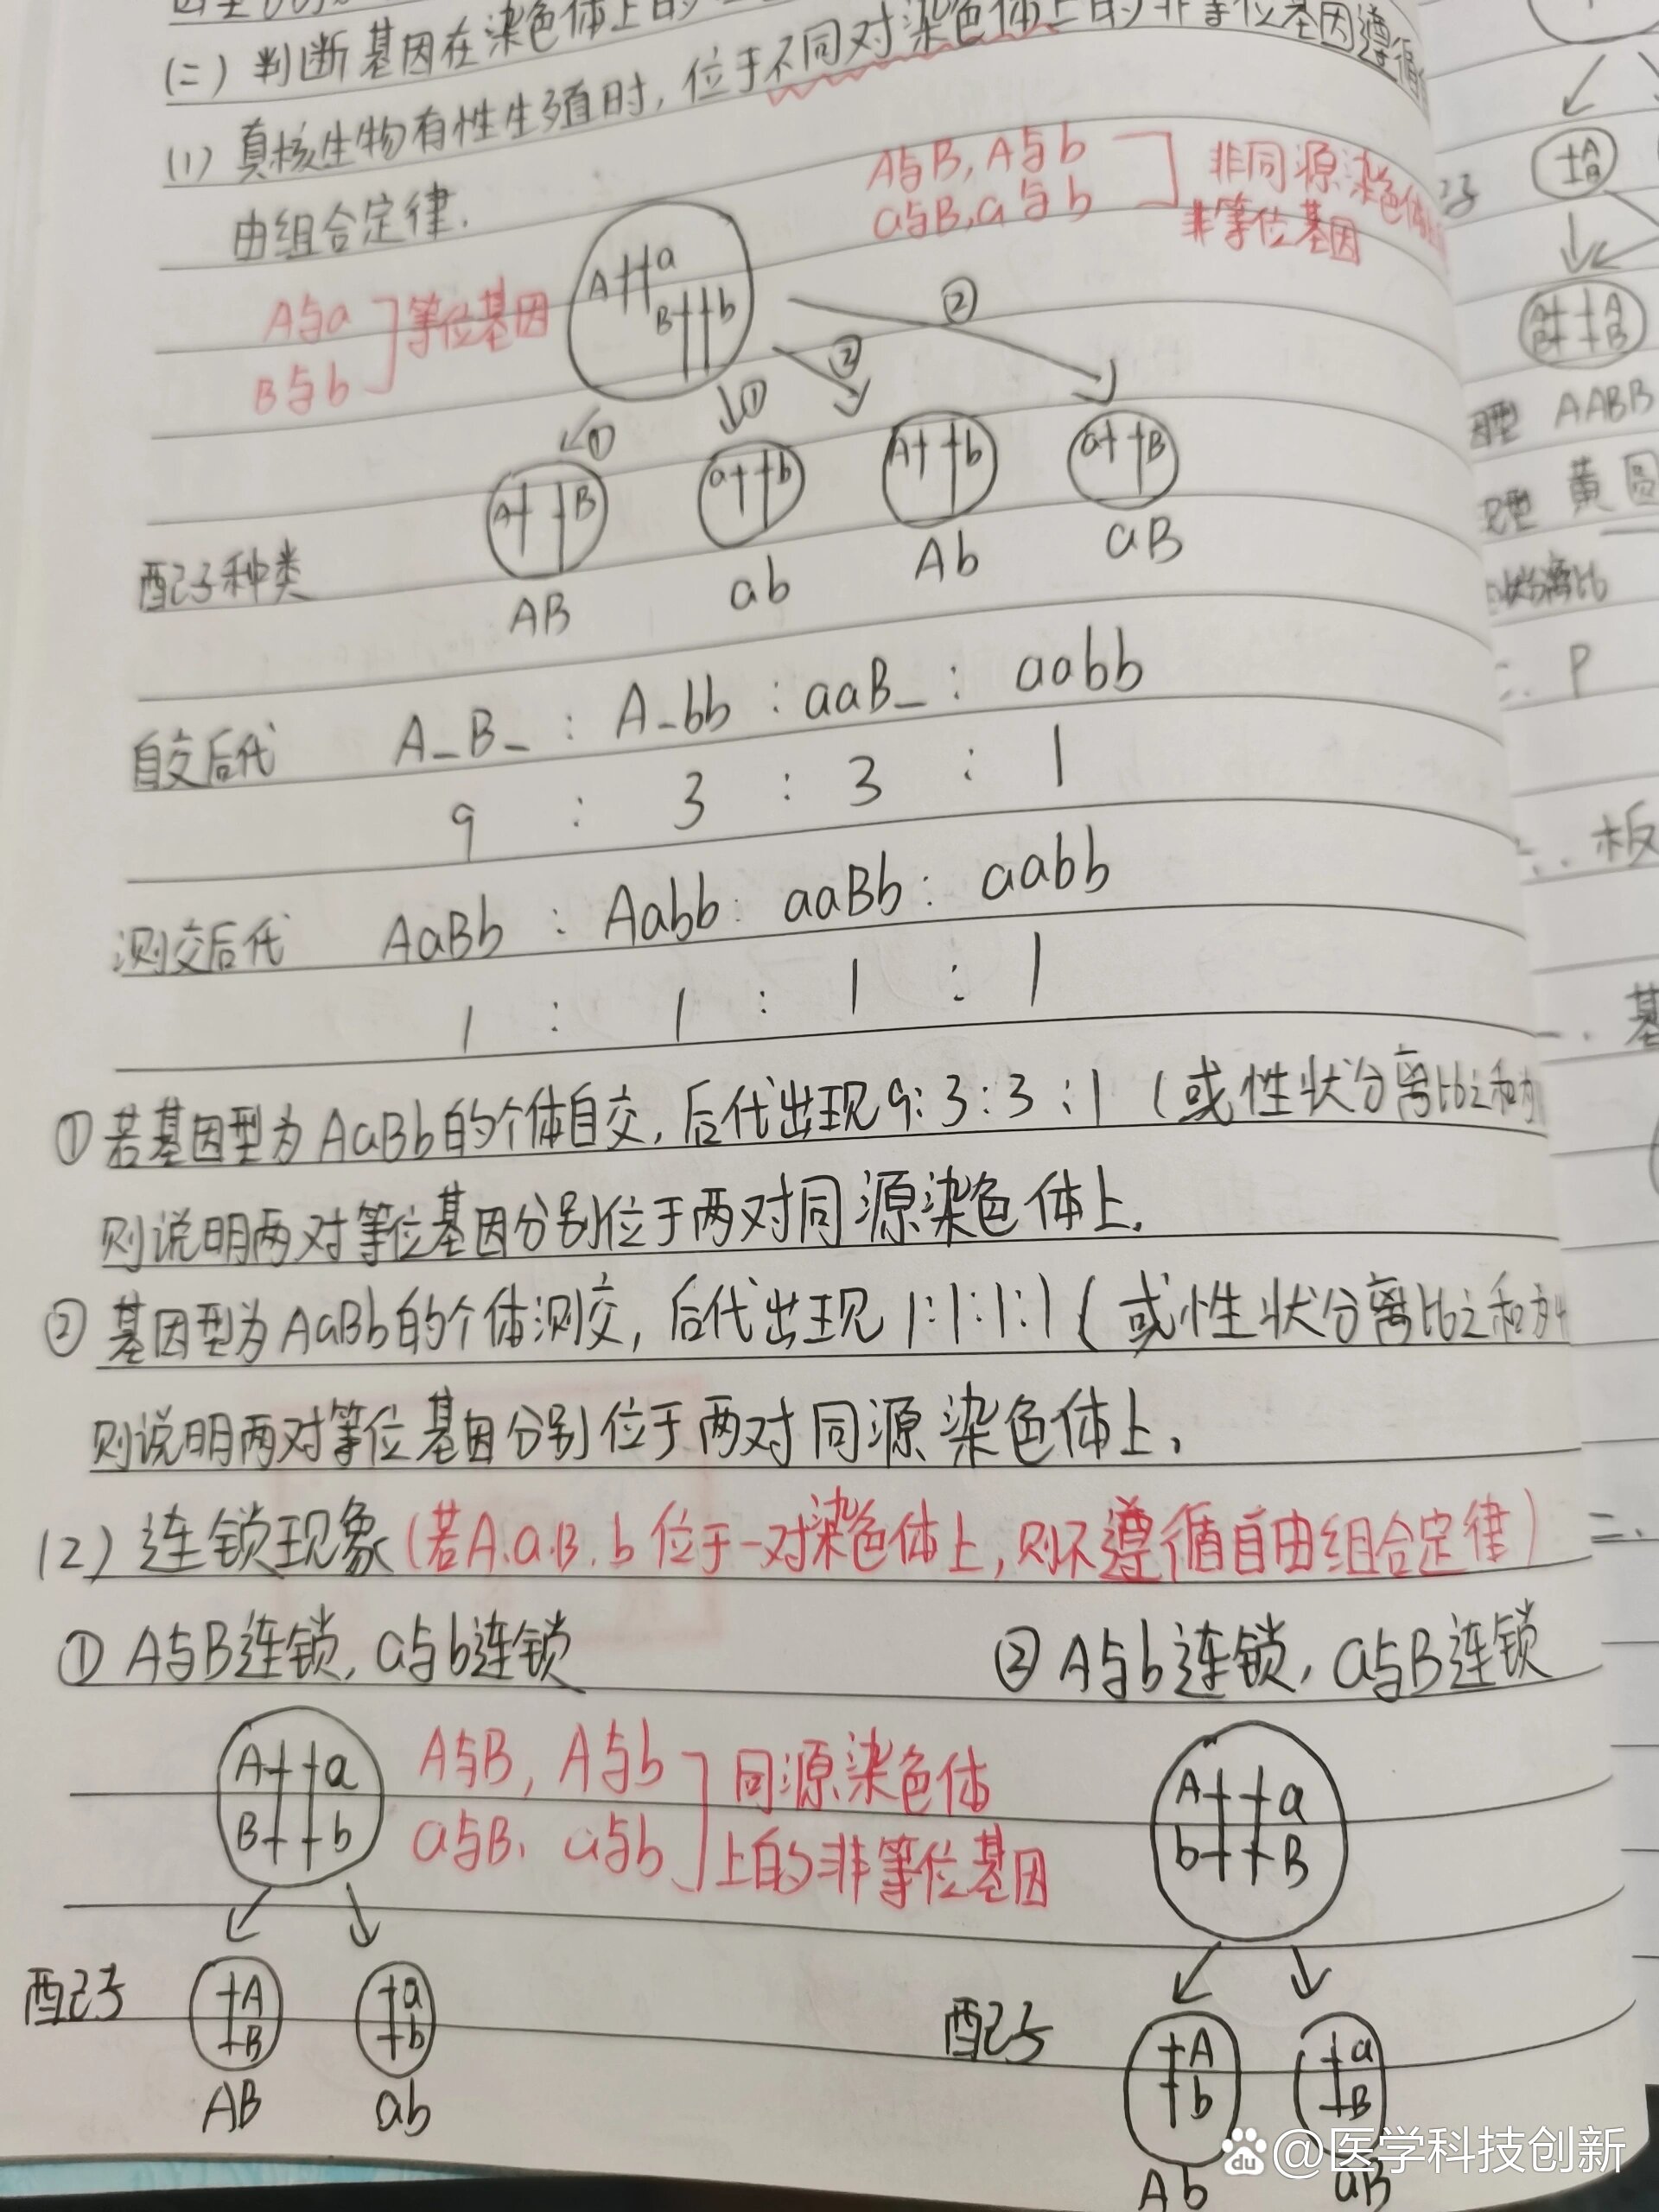 (二) 判断基因在染色体上的
(1) 真核生物有性生殖时, 位于不同对染色体上的非等位基因遵循
由组合定律.
A与B, A与b
a与B, a与b
非同源染色体
非等位基因
A与a
B与b
等位基因
A a
B b
② ②
① ①
A B
a b
A b
a B
配子种类 AB ab Ab aB
自交后代 A_B_ : A_bb : aaB_ : aabb
9 : 3 : 3 : 1
测交后代 AaBb : Aabb : aaBb : aabb
1 : 1 : 1 : 1
① 若基因型为AaBb的个体自交, 后代出现9:3:3:1 (或性状分离比之和为
则说明两对等位基因分别位于两对同源染色体上.
② 基因型为AaBb的个体测交, 后代出现1:1:1:1 (或性状分离比之和为4
则说明两对等位基因分别位于两对同源染色体上.
(2) 连锁现象 (若A.a.B.b位于一对染色体上, 则不遵循自由组合定律)
① A与B连锁, a与b连锁
② A与b连锁, a与B连锁
A a
B b
A与B, A与b
a与B, a与b
同源染色体
上的非等位基因
A a
b B
配子
A
B
a
b
AB ab
配子
A
b
a
B
Ab aB
A
B
A A
B B
型 AABB
型 黄圆
P
板
基
二、
@医学科技创新